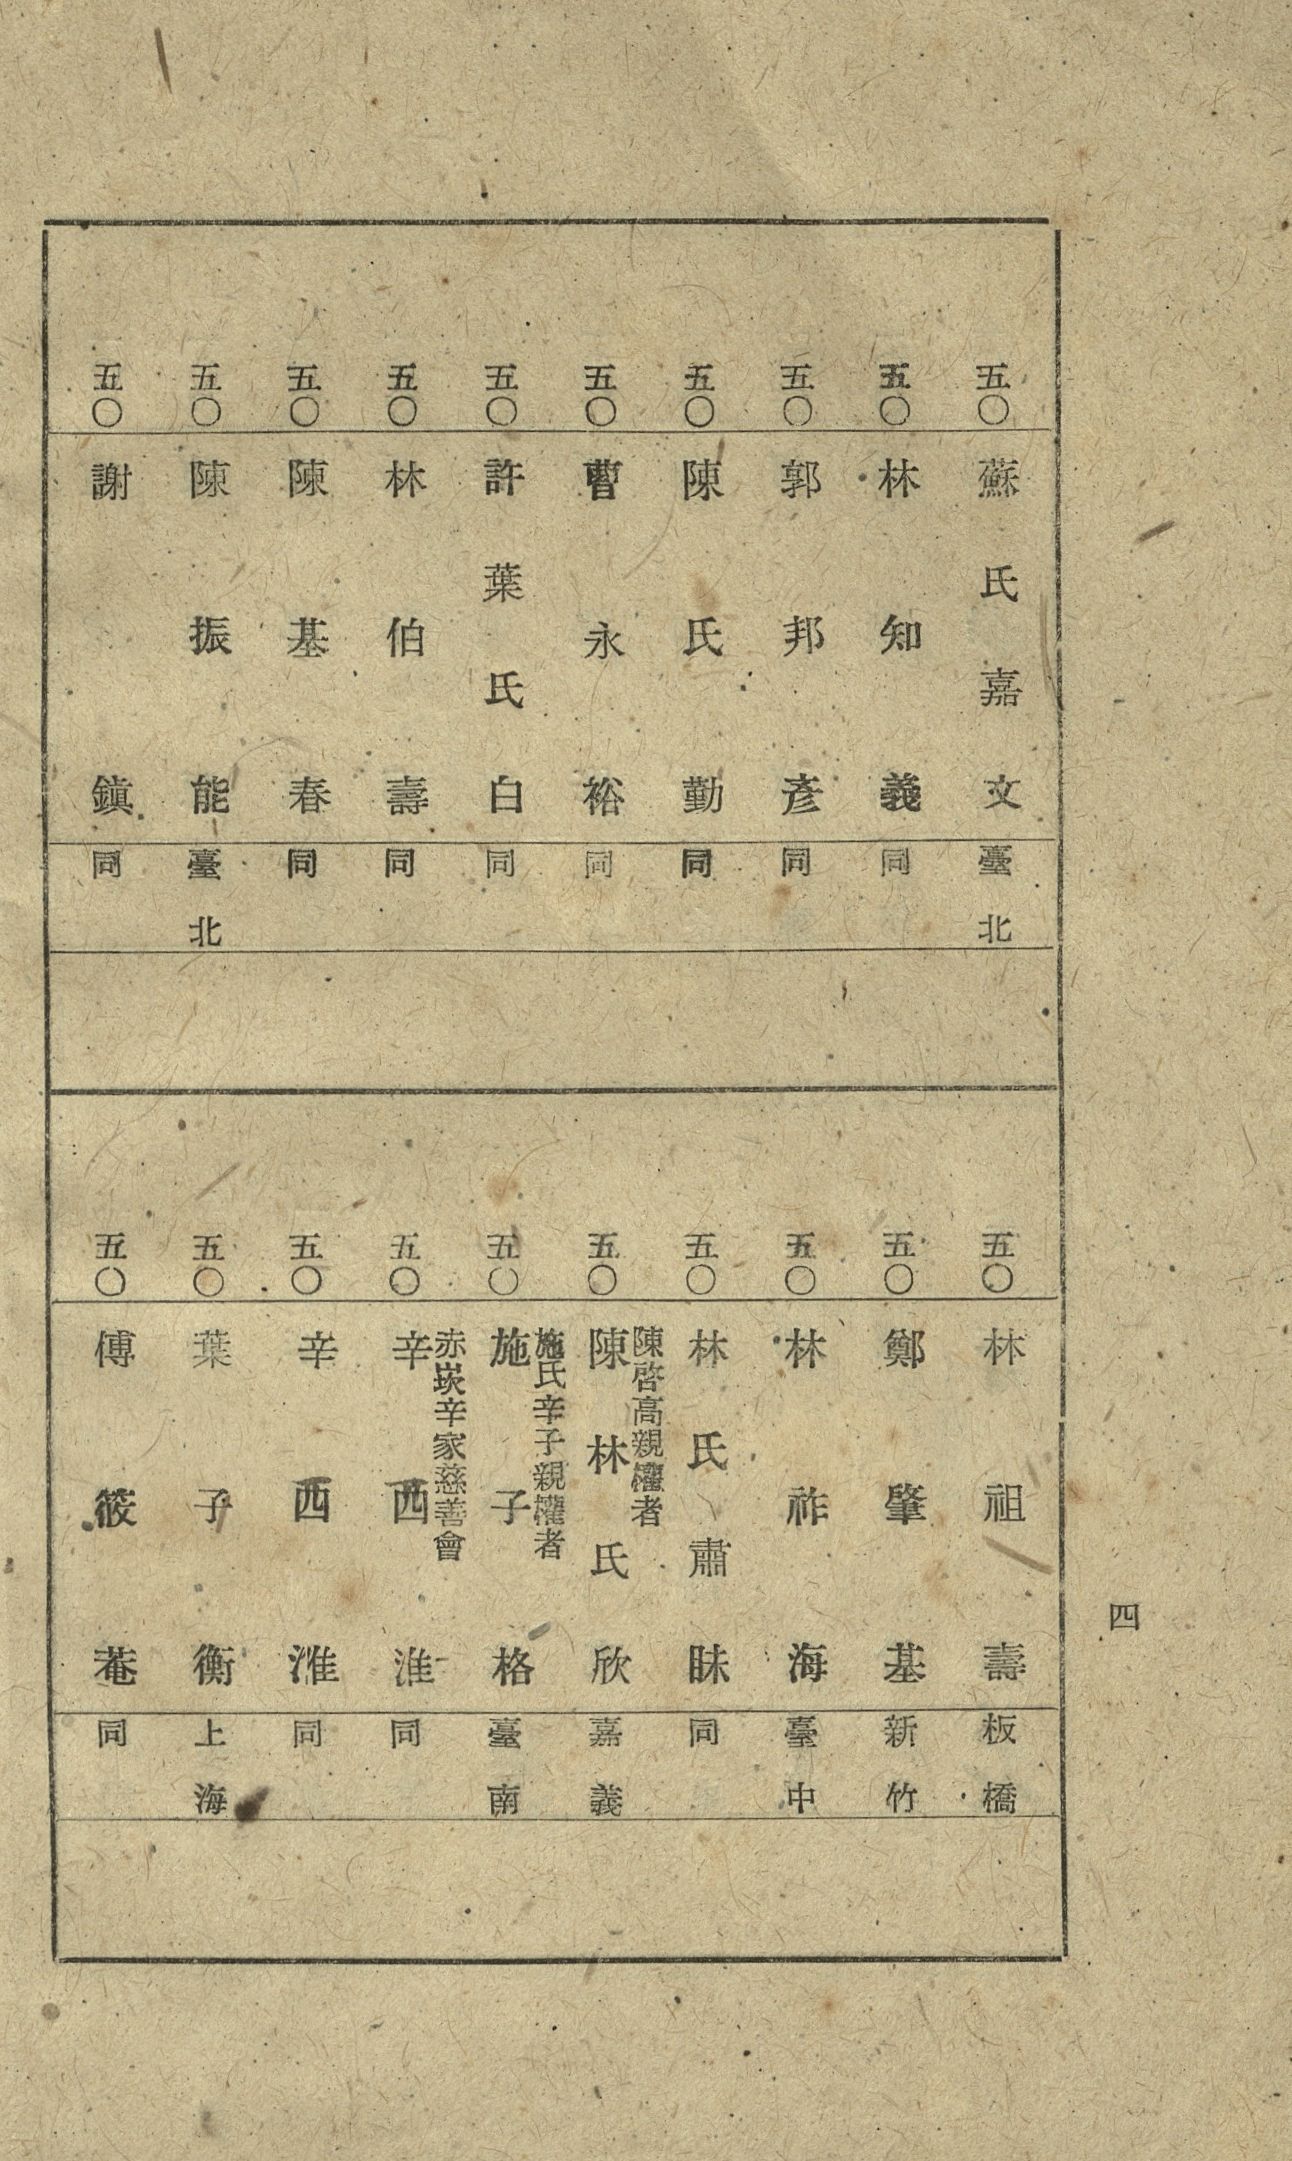 五〇 蘇氏嘉文 臺北
五〇 林知義 同
五〇 郭邦彥 同
五〇 陳氏勤 同
五〇 曹永裕 同
五〇 許葉氏白 同
五〇 林伯壽 同
五〇 陳基春 同
五〇 陳振能 臺北
五〇 謝鎭 同
五〇 林祖壽 板橋
五〇 鄭肇基 新竹
五〇 林祚海 臺中
五〇 林氏肅昧 同
陳啓高親權者
五〇 陳林氏欣 嘉義
施氏辛子親權者
五〇 施子格 臺南
赤崁辛家慈善會
五〇 辛西淮 同
五〇 辛西淮 同
五〇 葉子衡 上海
五〇 傅筱菴 同
四